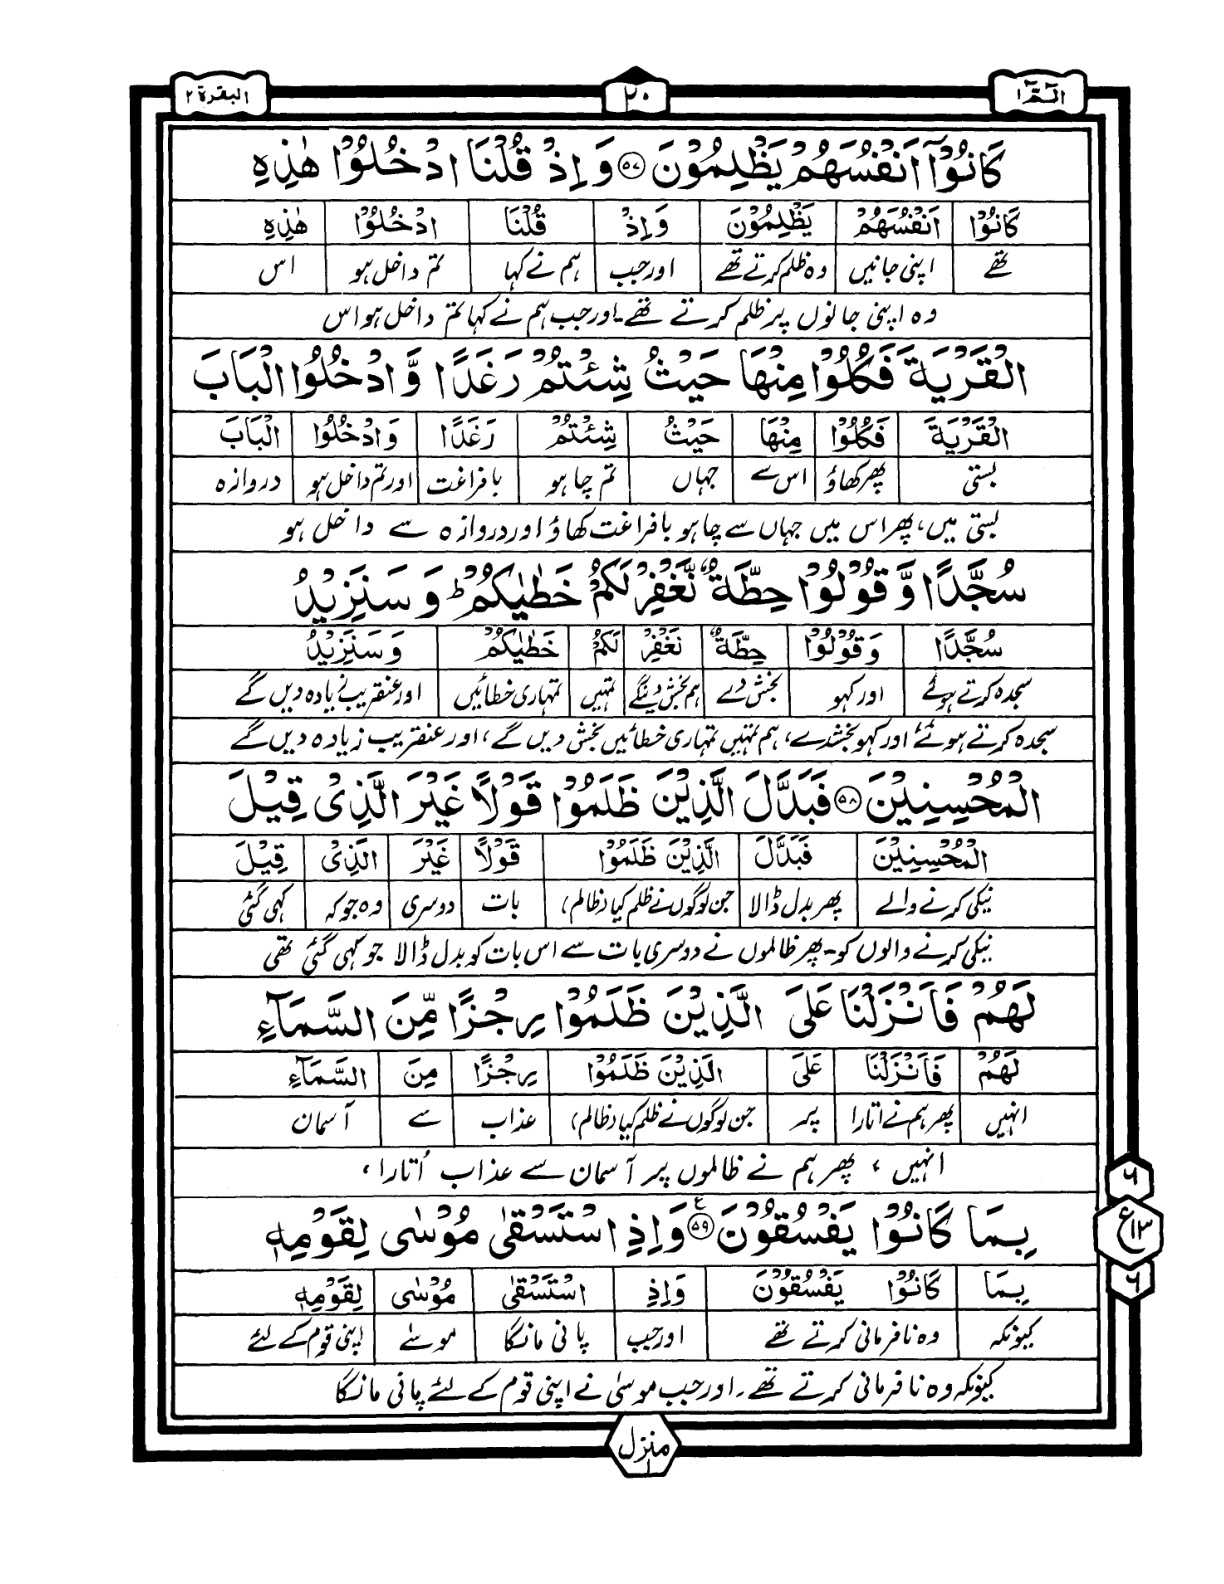 الٓمٓ ١
٢٠
البقرة ٢
كَانُوْۤا اَنْفُسَهُمْ يَظْلِمُوْنَ ﴿٥٧﴾ وَ اِذْ قُلْنَا ادْخُلُوْا هٰذِهِ
كَانُوْۤا اَنْفُسَهُمْ يَظْلِمُوْنَ وَاِذْ قُلْنَا ادْخُلُوْا هٰذِهِ
تھے اپنی جانیں وہ ظلم کرتے تھے اور جب ہم نے کہا تم داخل ہو اس
وہ اپنی جانوں پر ظلم کرتے تھے۔ اور جب ہم نے کہا تم داخل ہو اس
الْقَرْيَةَ فَكُلُوْا مِنْهَا حَيْثُ شِئْتُمْ رَغَدًا وَّ ادْخُلُوا الْبَابَ
الْقَرْيَةَ فَكُلُوْا مِنْهَا حَيْثُ شِئْتُمْ رَغَدًا وَادْخُلُوا الْبَابَ
بستی پھر کھاؤ اس سے جہاں تم چاہو بافراغت اور تم داخل ہو دروازہ
بستی میں، پھر اس میں جہاں سے چاہو بافراغت کھاؤ اور دروازہ سے داخل ہو
سُجَّدًا وَّ قُوْلُوْا حِطَّةٌ نَّغْفِرْ لَكُمْ خَطٰيٰكُمْ ؕ وَ سَنَزِيْدُ
سُجَّدًا وَقُوْلُوْا حِطَّةٌ نَغْفِرْ لَكُمْ خَطٰيٰكُمْ وَ سَنَزِيْدُ
سجدہ کرتے ہوئے اور کہو بخش دے ہم بخش دینگے تمہیں تمہاری خطائیں اور عنقریب زیادہ دیں گے
سجدہ کرتے ہوئے، اور کہو بخشدے، ہم تمہیں تمہاری خطائیں بخش دیں گے، اور عنقریب زیادہ دیں گے
الْمُحْسِنِيْنَ ﴿٥٨﴾ فَبَدَّلَ الَّذِيْنَ ظَلَمُوْا قَوْلًا غَيْرَ الَّذِىْ قِيْلَ
الْمُحْسِنِيْنَ فَبَدَّلَ الَّذِيْنَ ظَلَمُوْا قَوْلًا غَيْرَ الَّذِىْ قِيْلَ
نیکی کرنے والے پھر بدل ڈالا جن لوگوں نے ظلم کیا (ظالم) بات دوسری وہ جو کہ کہی گئی
نیکی کرنے والوں کو۔ پھر ظالموں نے دوسری بات سے اس بات کو بدل ڈالا جو کہی گئی تھی
لَهُمْ فَاَنْزَلْنَا عَلَى الَّذِيْنَ ظَلَمُوْا رِجْزًا مِّنَ السَّمَآءِ
لَهُمْ فَاَنْزَلْنَا عَلَى الَّذِيْنَ ظَلَمُوْا رِجْزًا مِنَ السَّمَآءِ
انہیں پھر ہم نے اتارا پر جن لوگوں نے ظلم کیا (ظالم) عذاب سے آسمان
انہیں ، پھر ہم نے ظالموں پر آسمان سے عذاب اُتارا ،
بِمَا كَانُوْا يَفْسُقُوْنَ ﴿٥٩﴾ ع وَ اِذِ اسْتَسْقٰى مُوْسٰى لِقَوْمِهٖ
بِمَا كَانُوْا يَفْسُقُوْنَ وَ اِذِ اسْتَسْقٰى مُوْسٰى لِقَوْمِهٖ
کیونکہ وہ نافرمانی کرتے تھے اور جب پانی مانگا موسٰے اپنی قوم کے لئے
کیونکہ وہ نافرمانی کرتے تھے۔ اور جب موسٰی نے اپنی قوم کے لئے پانی مانگا
٦
ع ١٣
٦
منزل ١